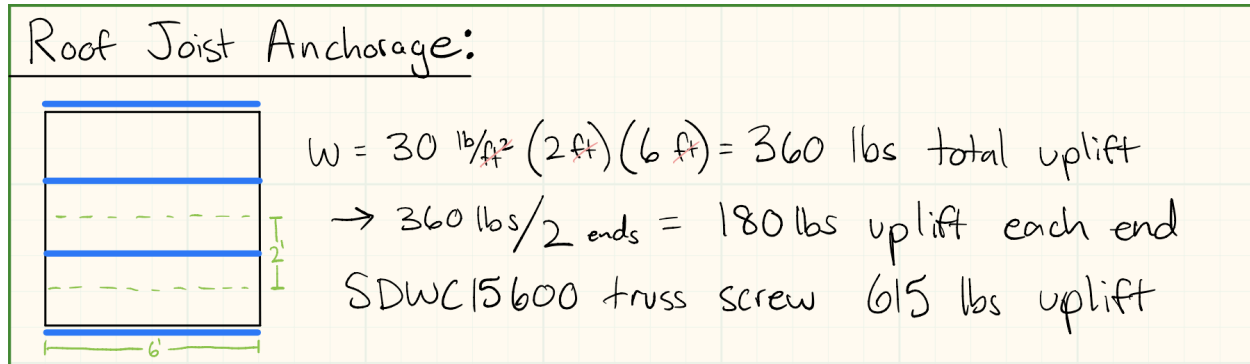 Roof Joist Anchorage:
W = 30 lb/ft² (2 ft)(6 ft) = 360 lbs total uplift
→ 360 lbs/2 ends = 180 lbs uplift each end
2'
SDWC15600 truss screw 615 lbs uplift
6'